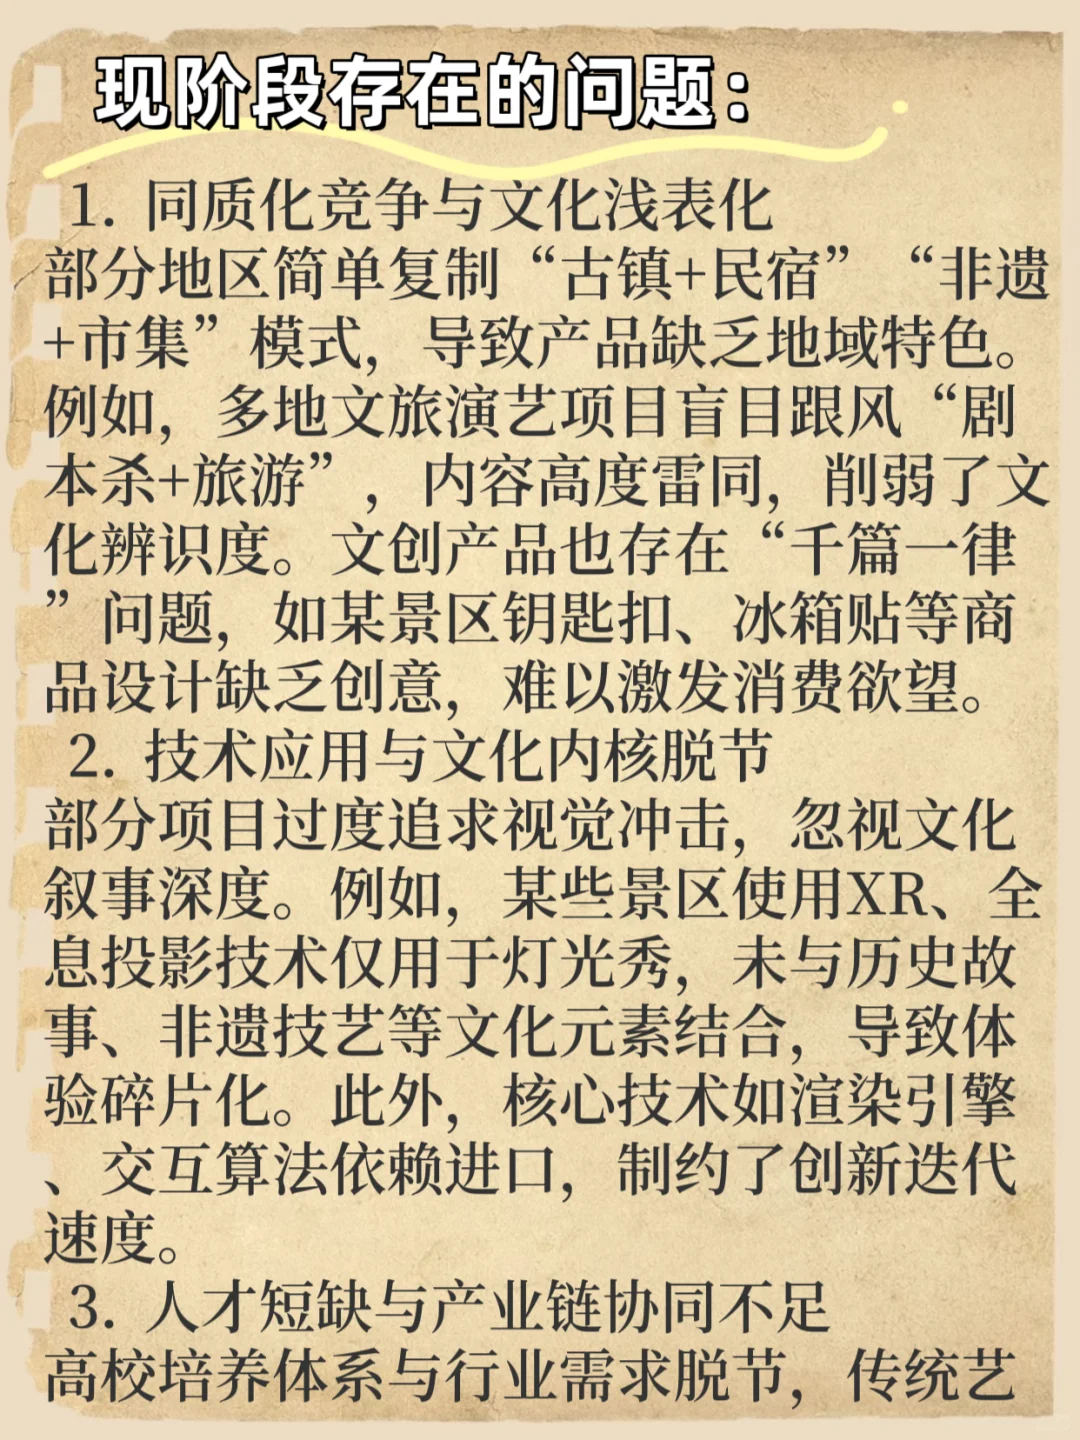 现阶段存在的问题：
1. 同质化竞争与文化浅表化
部分地区简单复制“古镇+民宿”“非遗
+市集”模式，导致产品缺乏地域特色。
例如，多地文旅演艺项目盲目跟风“剧
本杀+旅游”，内容高度雷同，削弱了文
化辨识度。文创产品也存在“千篇一律
”问题，如某景区钥匙扣、冰箱贴等商
品设计缺乏创意，难以激发消费欲望。
2. 技术应用与文化内核脱节
部分项目过度追求视觉冲击，忽视文化
叙事深度。例如，某些景区使用XR、全
息投影技术仅用于灯光秀，未与历史故
事、非遗技艺等文化元素结合，导致体
验碎片化。此外，核心技术如渲染引擎
、交互算法依赖进口，制约了创新迭代
速度。
3. 人才短缺与产业链协同不足
高校培养体系与行业需求脱节，传统艺